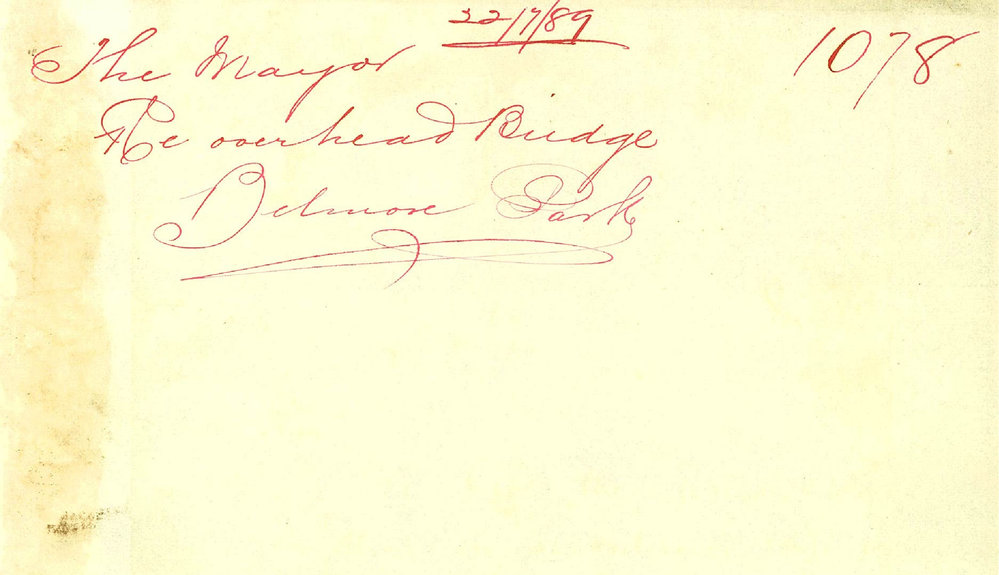 22/7/89
The Mayor 1078
Re overhead Bridge
Belmore Park